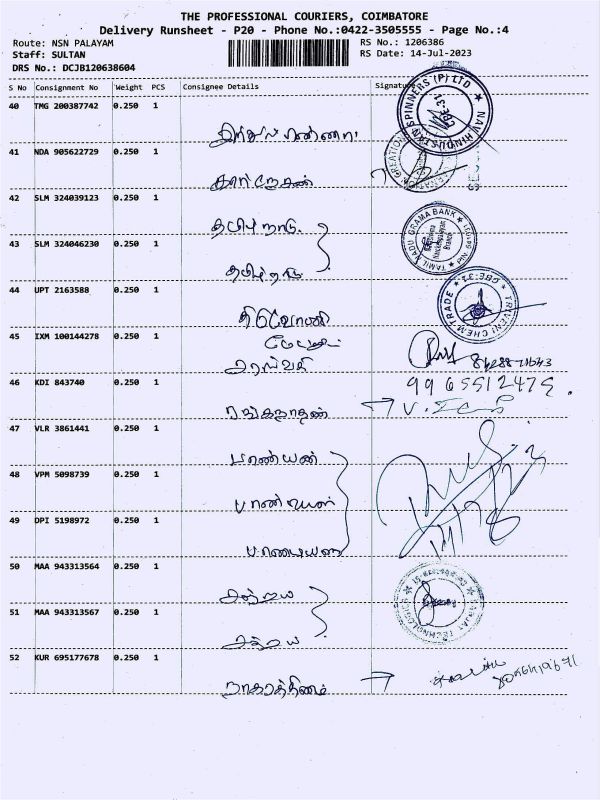 THE PROFESSIONAL COURIERS, COIMBATORE
Delivery Runsheet - P20 - Phone No.:0422-3505555 - Page No.:4
Route: NSN PALAYAM RS No.: 1206386
Staff: SULTAN RS Date: 14-Jul-2023
DRS No.: DCJB120638604
S No Consignment No Weight PCS Consignee Details Signature
40 TMG 200387742 0.250 1
NAV HINDUSTAN SPINNERS (P) LTD
41 NDA 905622729 0.250 1
கார்முகேகன்
42 SLM 324039123 0.250 1
தமிழ்நாடு
TAMIL NADU GRAMA BANK
43 SLM 324046230 0.250 1
தமிழ்நாடு
44 UPT 2163588 0.250 1
திரிவேணி
TRIVENI CHEM TRADE
CBE-31
45 IXM 100144278 0.250 1
46 KDI 843740 0.250 1
9965512475.
ரங்கநாதன்
47 VLR 3861441 0.250 1
பாண்டியன்
48 VPM 5098739 0.250 1
பாண்டியன்
49 DPI 5198972 0.250 1
பாண்டியன்
50 MAA 943313564 0.250 1
51 MAA 943313567 0.250 1
52 KUR 695177678 0.250 1